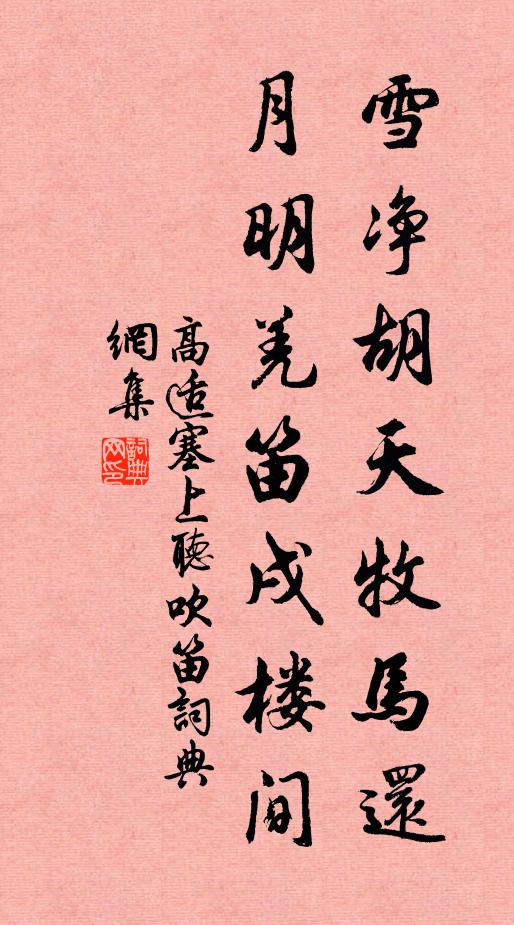 雪净胡天牧馬還
月明羌笛戍楼间
高适塞上聽吹笛詞典
網集
詞典網印